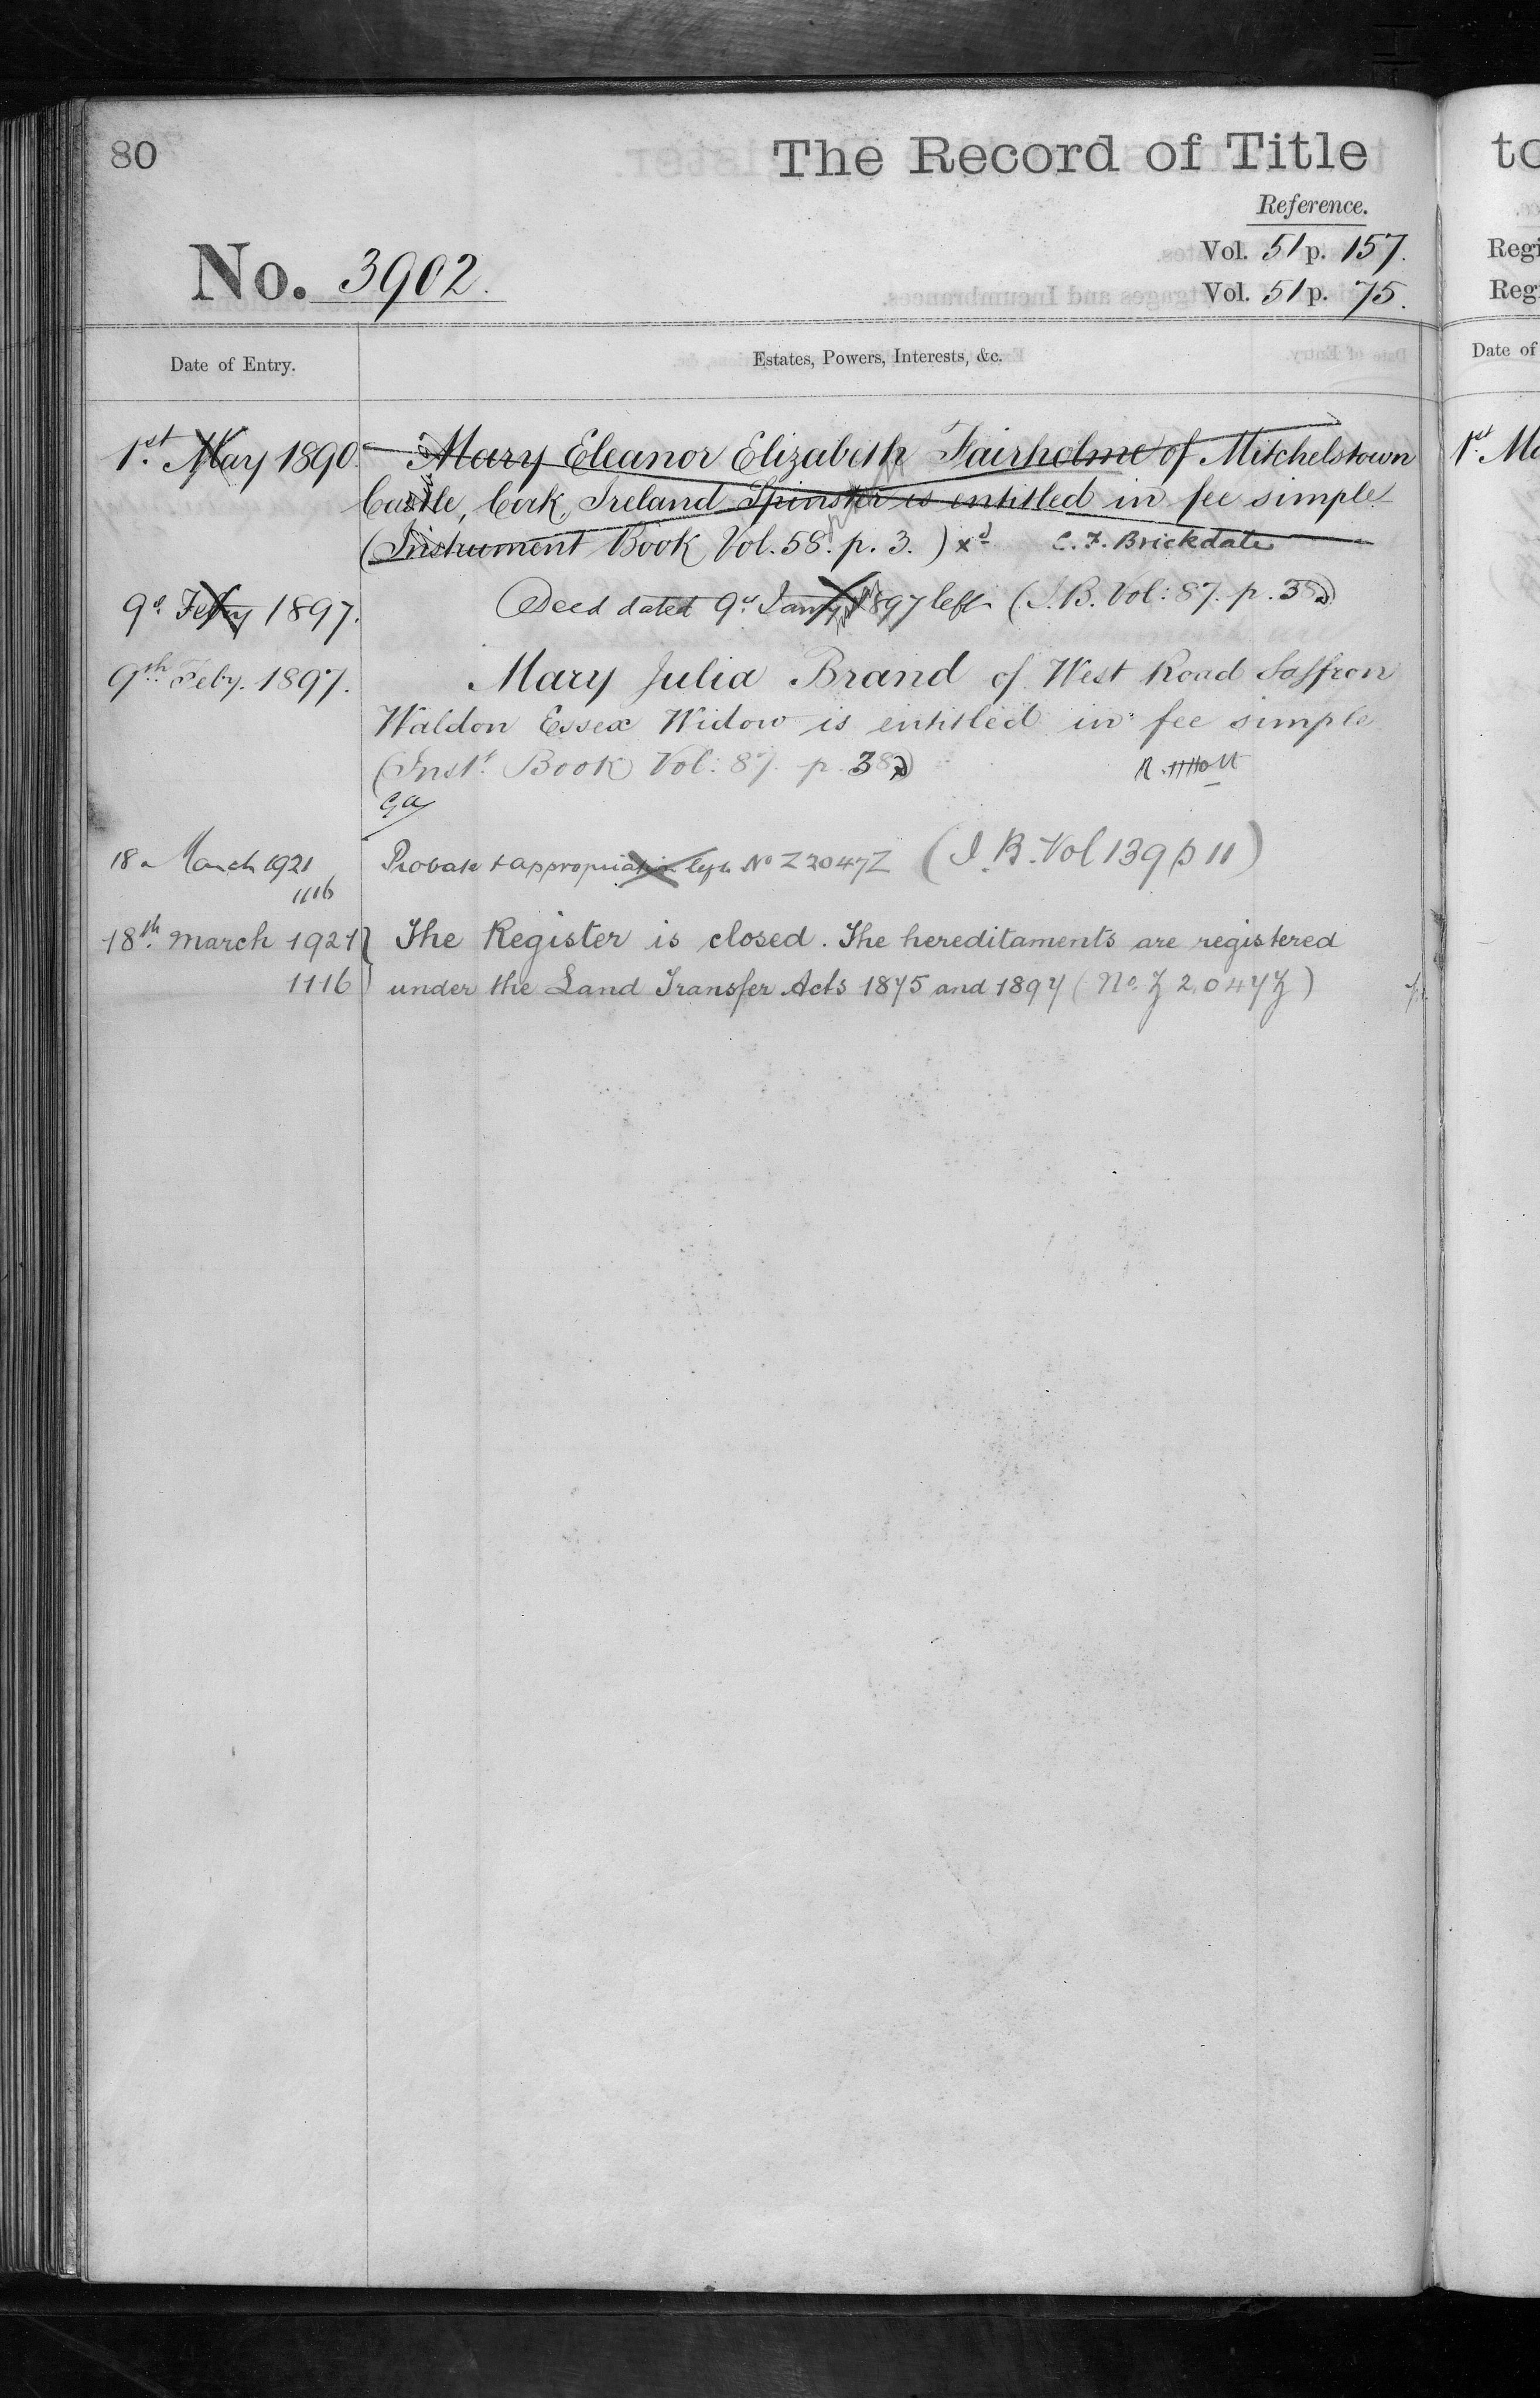 80
The Record of Title
Reference.
Vol. 51 p. 157.
No. 3902.
Vol. 51 p. 75.
Date of Entry.
Estates, Powers, Interests, &c.
1st May 1890.
Mary Eleanor Elizabeth Fairholme of Mitchelstown
Castle, Cork, Ireland Spinster is entitled in fee simple
(Instrument Book Vol. 58. p. 3.) xd C. F. Brickdale
9th Feby 1897.
Deed dated 9th Jany 1897 left (I.B. Vol: 87. p. 38)
9th Feby. 1897.
Mary Julia Brand of West Road Saffron
Waldon Essex Widow is entitled in fee simple
(Inst. Book Vol: 87. p. 38)
18 March 1921
1116
Probate & appropriation left No Z 2047Z (I.B. Vol 139 p 11)
18th March 1921
1116
The Register is closed. The hereditaments are registered
under the Land Transfer Acts 1875 and 1897 (No. Z 2047Z)
to
Regi
Reg
Date of
1st Ma